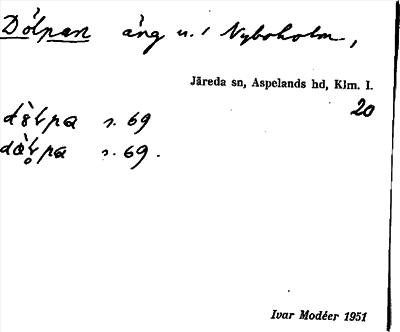 Dölpan äng u. i Nyboholm,
Järeda sn, Aspelands hd, Klm. l.
20
s. 69
s. 69.
Ivar Modéer 1951